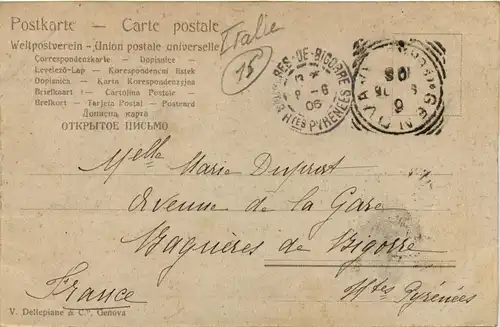 Postkarte — Carte postale
Weltpostverein – Union postale universelle
Correspondenzkarte – Dopisnice
Levelező-Lap – Korespondenční lístek
Dopisnica – Karta Korespondencyjna
Briefkaart – Cartolina Postale
Brefkort – Tarjeta Postal – Postcard
Дописна карта
ОТКРЫТОЕ ПИСЬМО
Italie
15
RES-DE-BIGORRE
8 - 6
06
Htes PYRÉNÉES
GEN
Melle Marie Duprat
Avenue de la Gare
Bagnères de Bigorre
Htes Pyrénées
France
V. Dellepiane & C., Genova